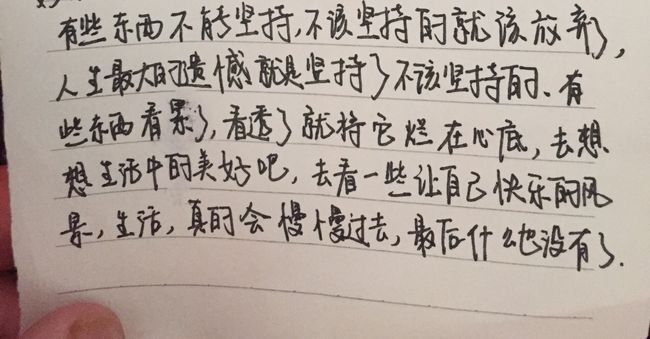 有些东西不能坚持,不该坚持的就该放弃了,
人生最大的遗憾就是坚持了不该坚持的、有
些东西看累了,看透了就将它烂在心底,去想
想生活中的美好吧,去看一些让自己快乐的风
景,生活,真的会慢慢过去,最后什么也没有了.